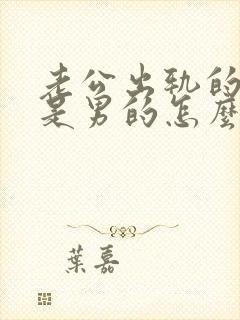 老公出轨的
是男的怎麼
葉嘉